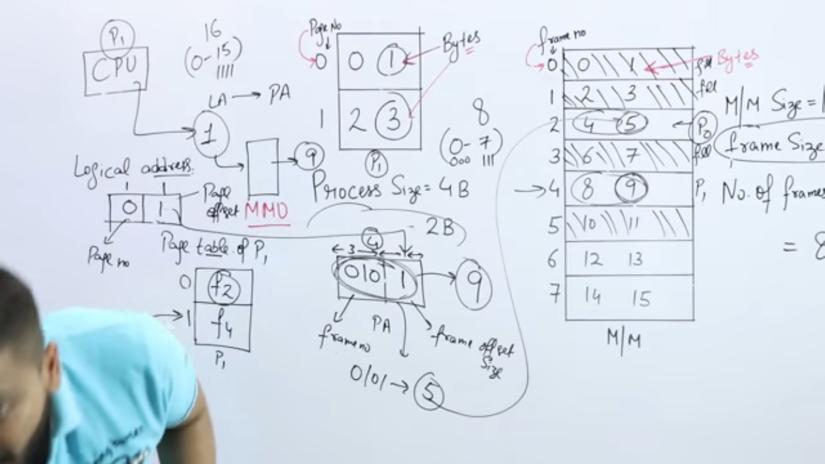 P1
CPU
16
(0-15)
1111
LA → PA
1
9
Logical address
0 1
Page no
Page offset
MMU
Page table of P1
0 f2
1 f4
P1
Page No
0 0 1
1 2 3
P1
Bytes
8
(0-7)
000 111
Process Size = 4B
2B
4
3 1
010 1
9
frame no
PA
frame offset Size
0101 → 5
frame no
0 0 1
1 2 3
2 4 5
3 6 7
4 8 9
5 10 11
6 12 13
7 14 15
M/M
Bytes
P0
P1
M/M Size = 1
frame Size
No. of frames
= 8